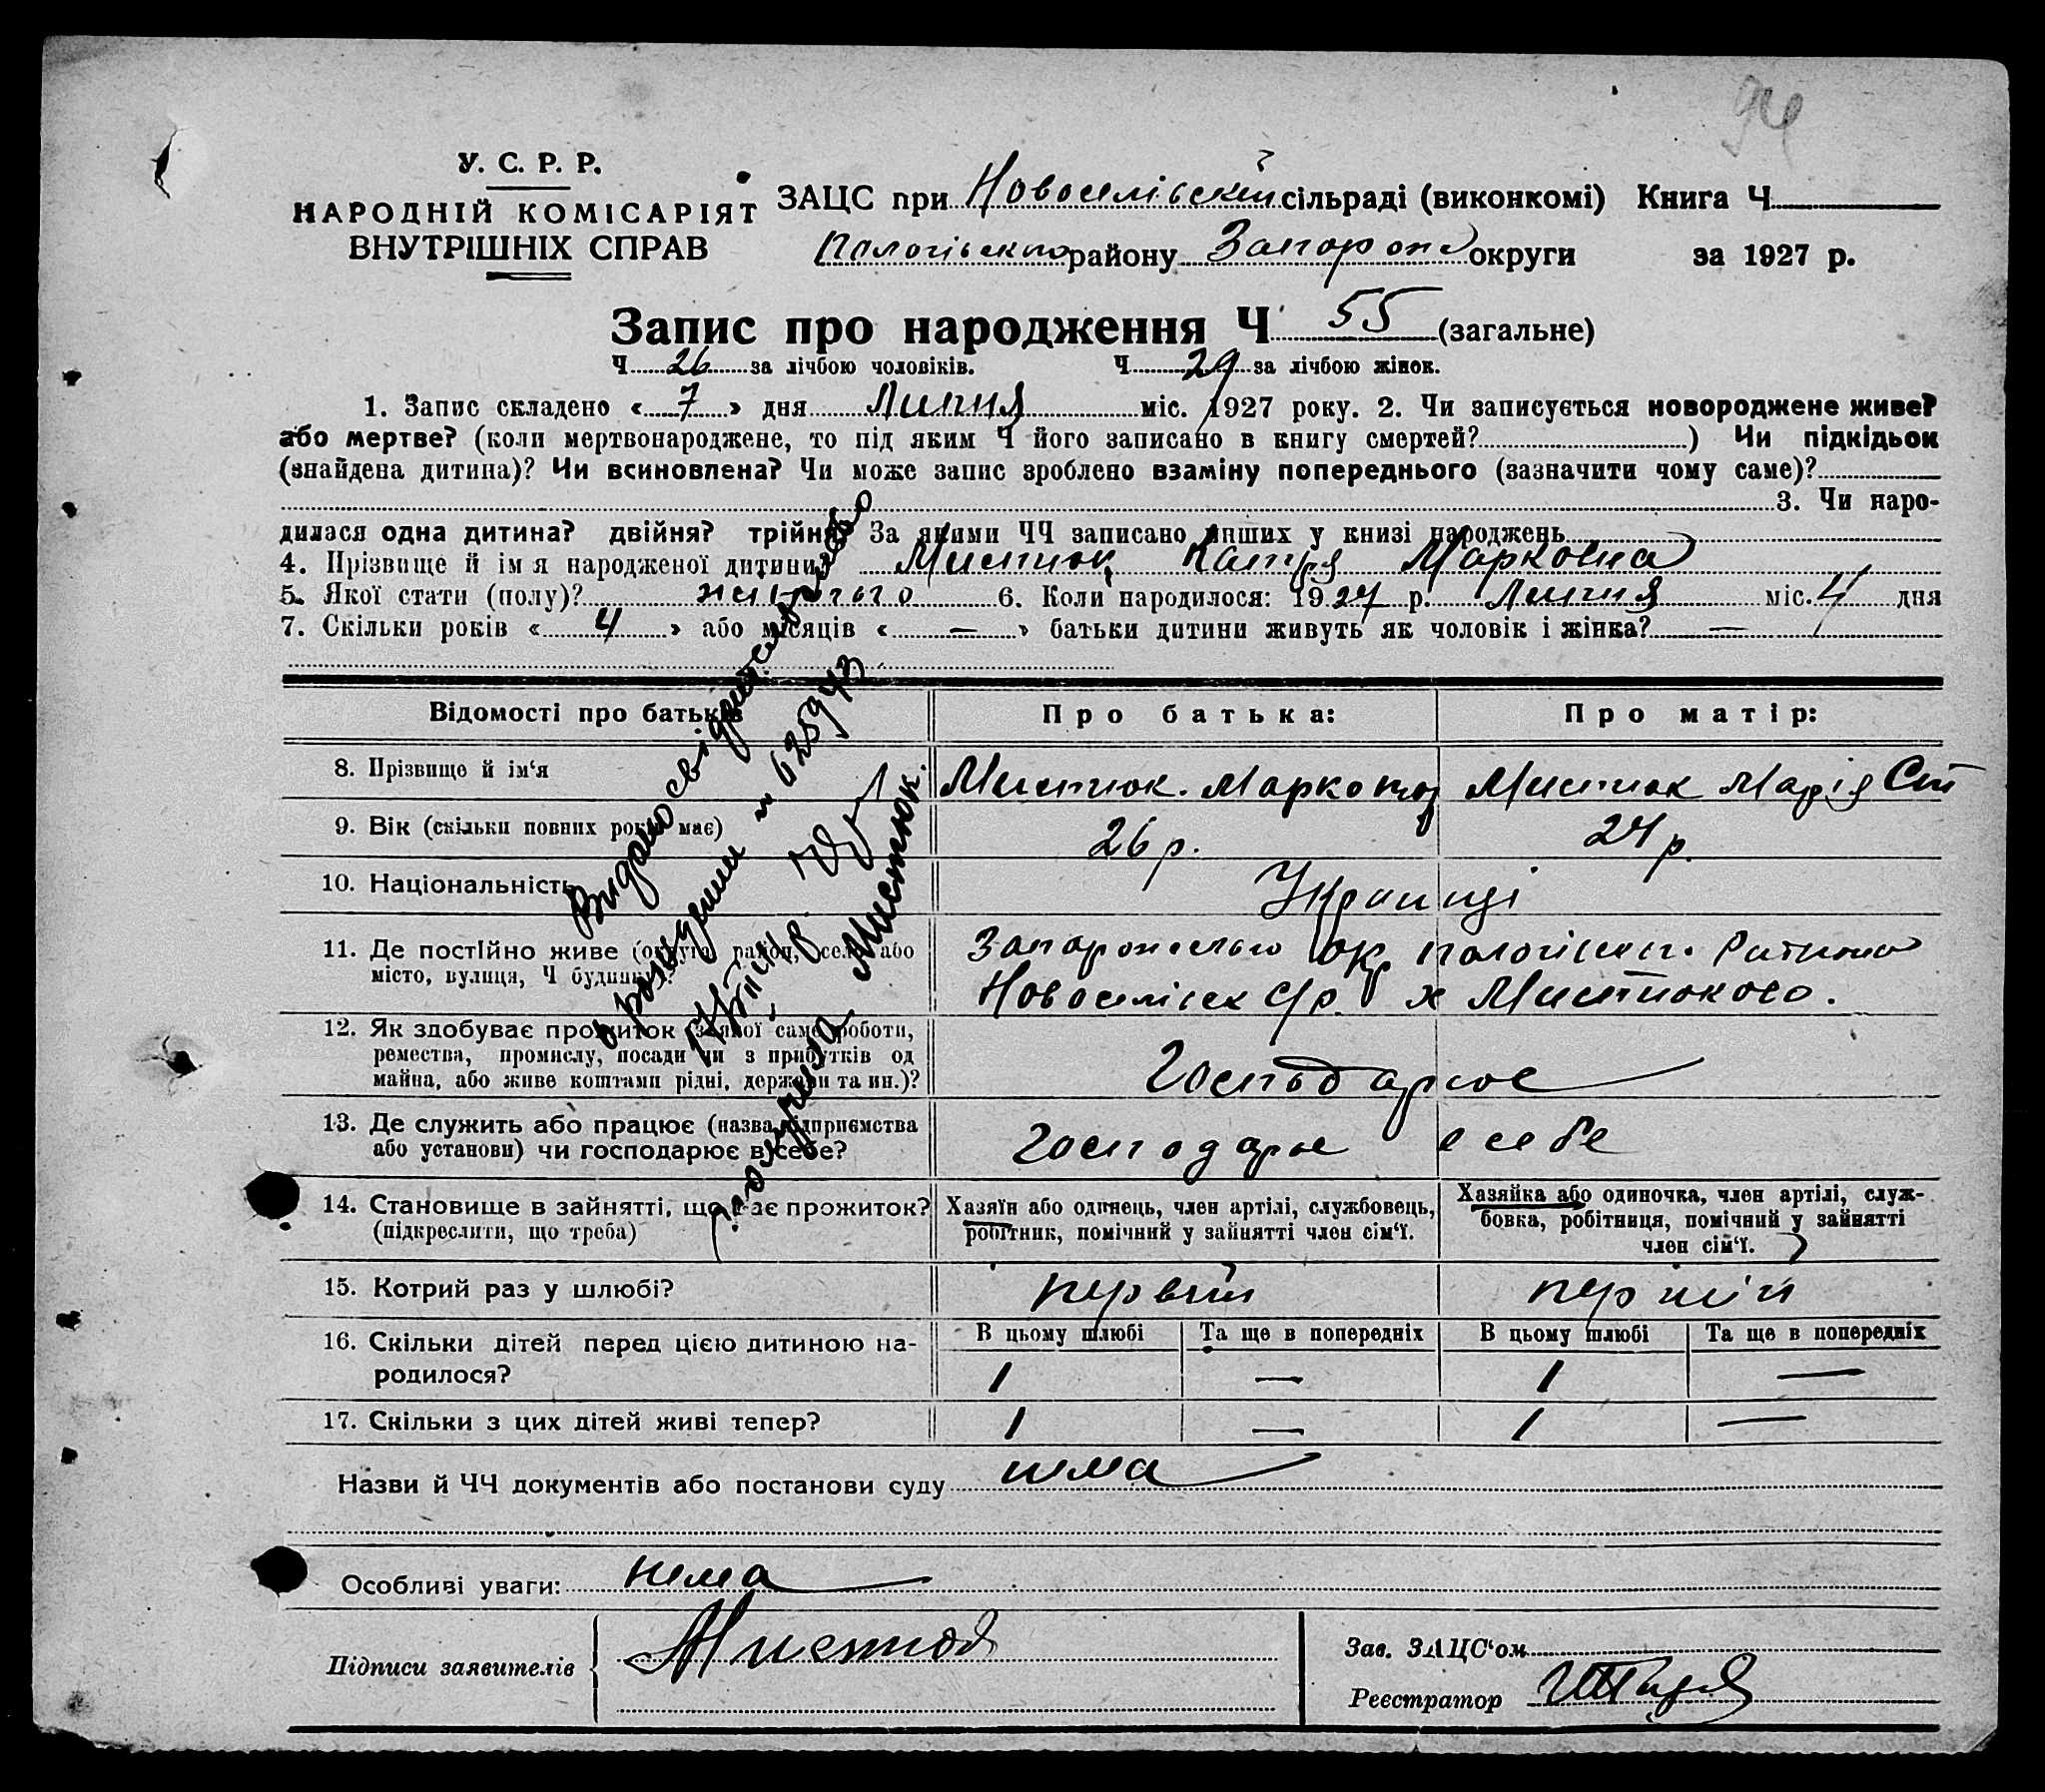 94
У. С. Р. Р.
НАРОДНІЙ КОМІСАРІЯТ
ВНУТРІШНІХ СПРАВ
ЗАЦС при Новоселівській сільраді (виконкомі) Книга Ч
Пологівського району Запорож округи за 1927 р.
Запис про народження Ч 55 (загальне)
Ч 26 за лічбою чоловіків. Ч 29 за лічбою жінок.
1. Запис складено « 7 » дня Липня міс. 1927 року. 2. Чи записується новороджене живе?
або мертве? (коли мертвонароджене, то під яким Ч його записано в книгу смертей? ) Чи підкідьок
(знайдена дитина)? Чи всиновлена? Чи може запис зроблено взаміну попереднього (зазначити чому саме)?
3. Чи наро-
дилася одна дитина? двійня? трійня? За якими ЧЧ записано инших у книзі народжень
4. Прізвище й ім я народженої дитини? Мистюк Катря Марковна
5. Якої стати (полу)? жіночого 6. Коли народилося: 1927 р. Липня міс. 4 дня
7. Скільки років « 4 » або місяців « — » батьки дитини живуть як чоловік і жінка? —
Відомості про батьків Про батька: Про матір:
8. Прізвище й ім‘я Мистюк Марко Мистюк Марія Ст
9. Вік (скільки повних років має) 26 р. 24 р.
10. Національність Українці
11. Де постійно живе (округа, район, село або
місто, вулиця, Ч будинку)?
Запорожського окр
Новоселівск с/р. х Мистюково.
12. Як здобуває прожиток (з якої саме роботи,
ремества, промислу, посади чи з прибутків од
майна, або живе коштами рідні, держави та ин.)?
Господарює
13. Де служить або працює (назва підприємства
або установи) чи господарює в себе?
Господарює в себе
14. Становище в зайнятті, що дає прожиток?
(підкреслити, що треба)
Хазяїн або одинець, член артілі, службовець,
робітник, помічний у зайнятті член сім‘ї.
Хазяйка або одиночка, член артілі, служ-
бовка, робітниця, помічний у зайнятті
член сім‘ї.
15. Котрий раз у шлюбі? первий перший
16. Скільки дітей перед цією дитиною на-
родилося?
В цьому шлюбі Та ще в попередніх В цьому шлюбі Та ще в попередніх
1 — 1 —
17. Скільки з цих дітей живі тепер? 1 — 1 —
Назви й ЧЧ документів або постанови суду нема
Особливі уваги: нема
Підписи заявителів Мистюк
Зав. ЗАЦС‘ом
Реєстратор
Видано свідительство
о рождении № 625943
получила Мистюк.